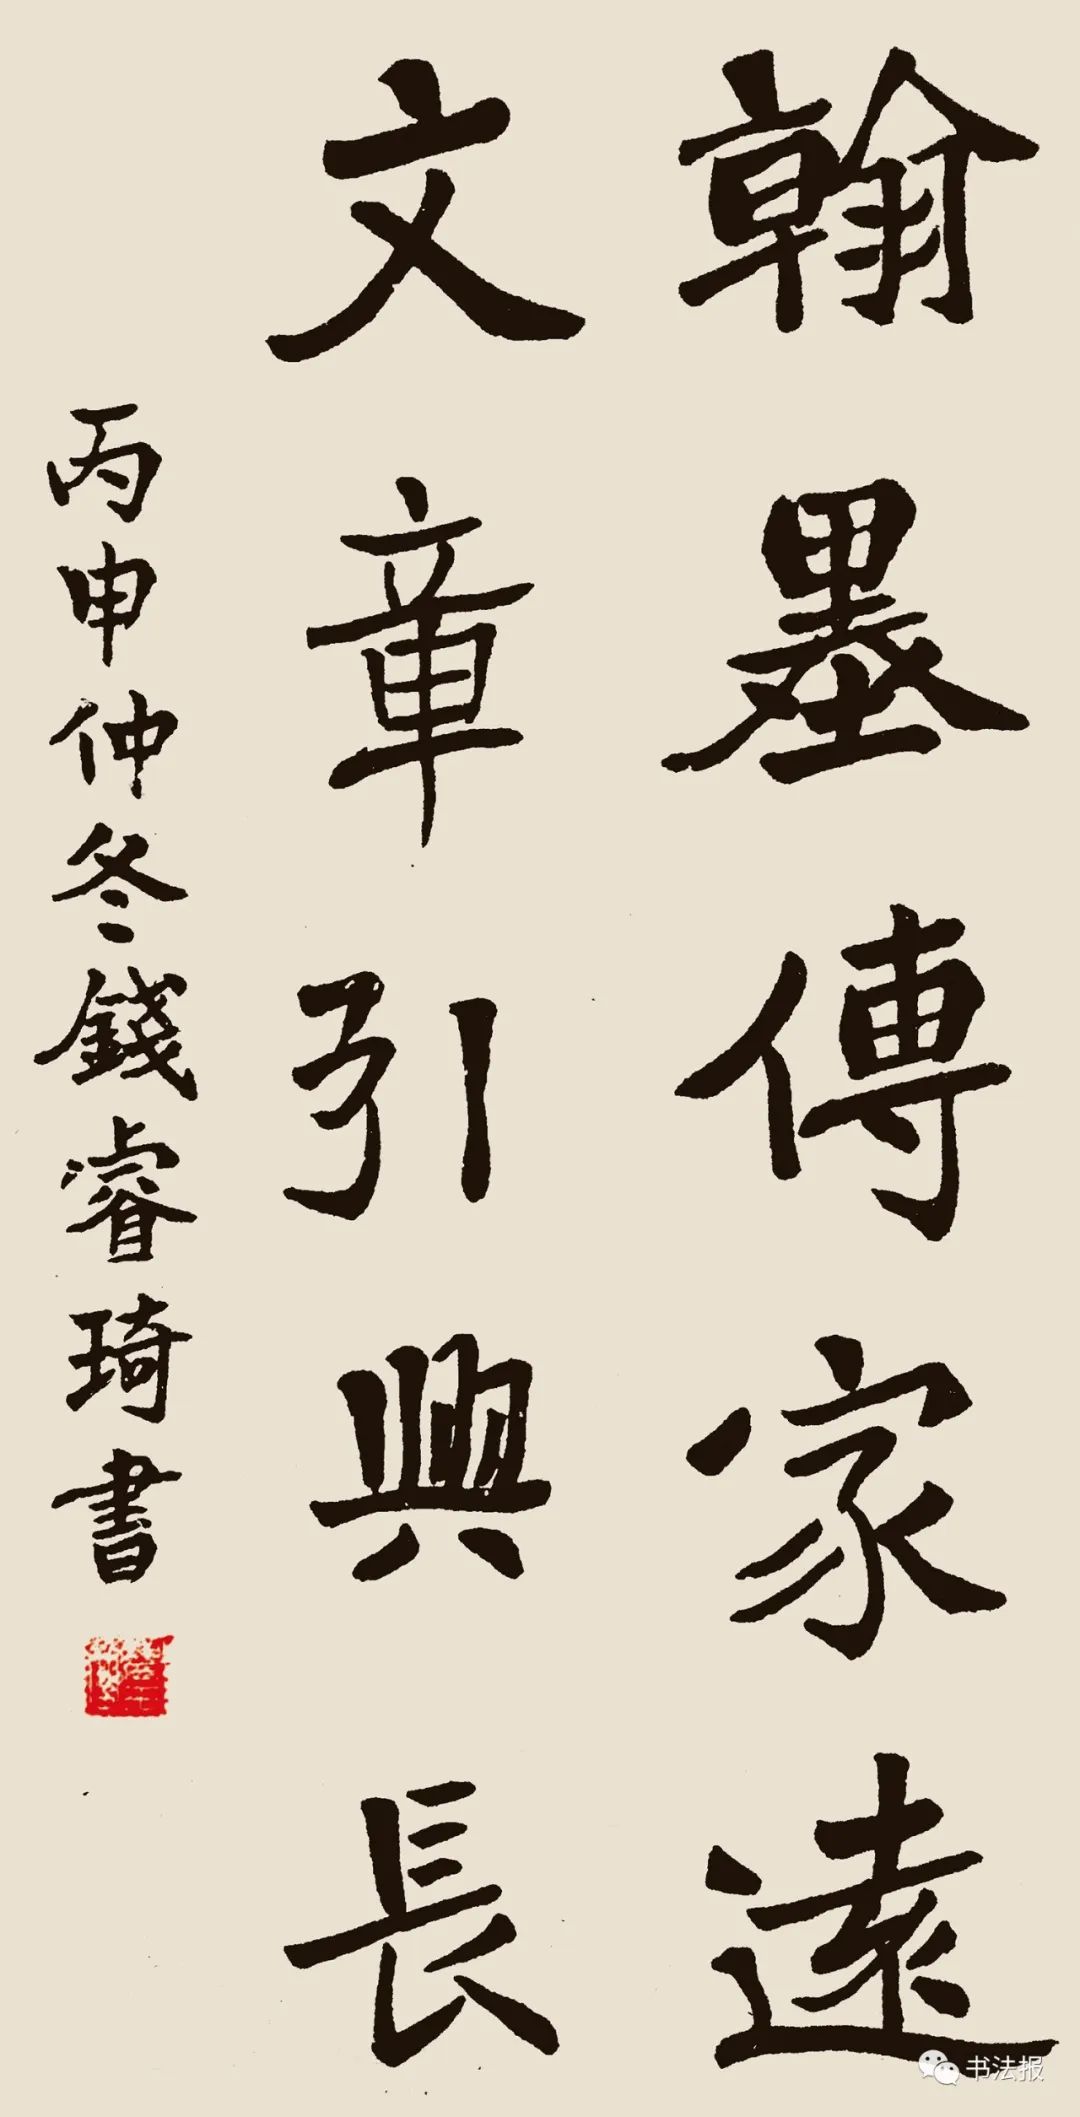 翰墨傳家遠
文章引興長
丙申仲冬錢睿琦書
书法报